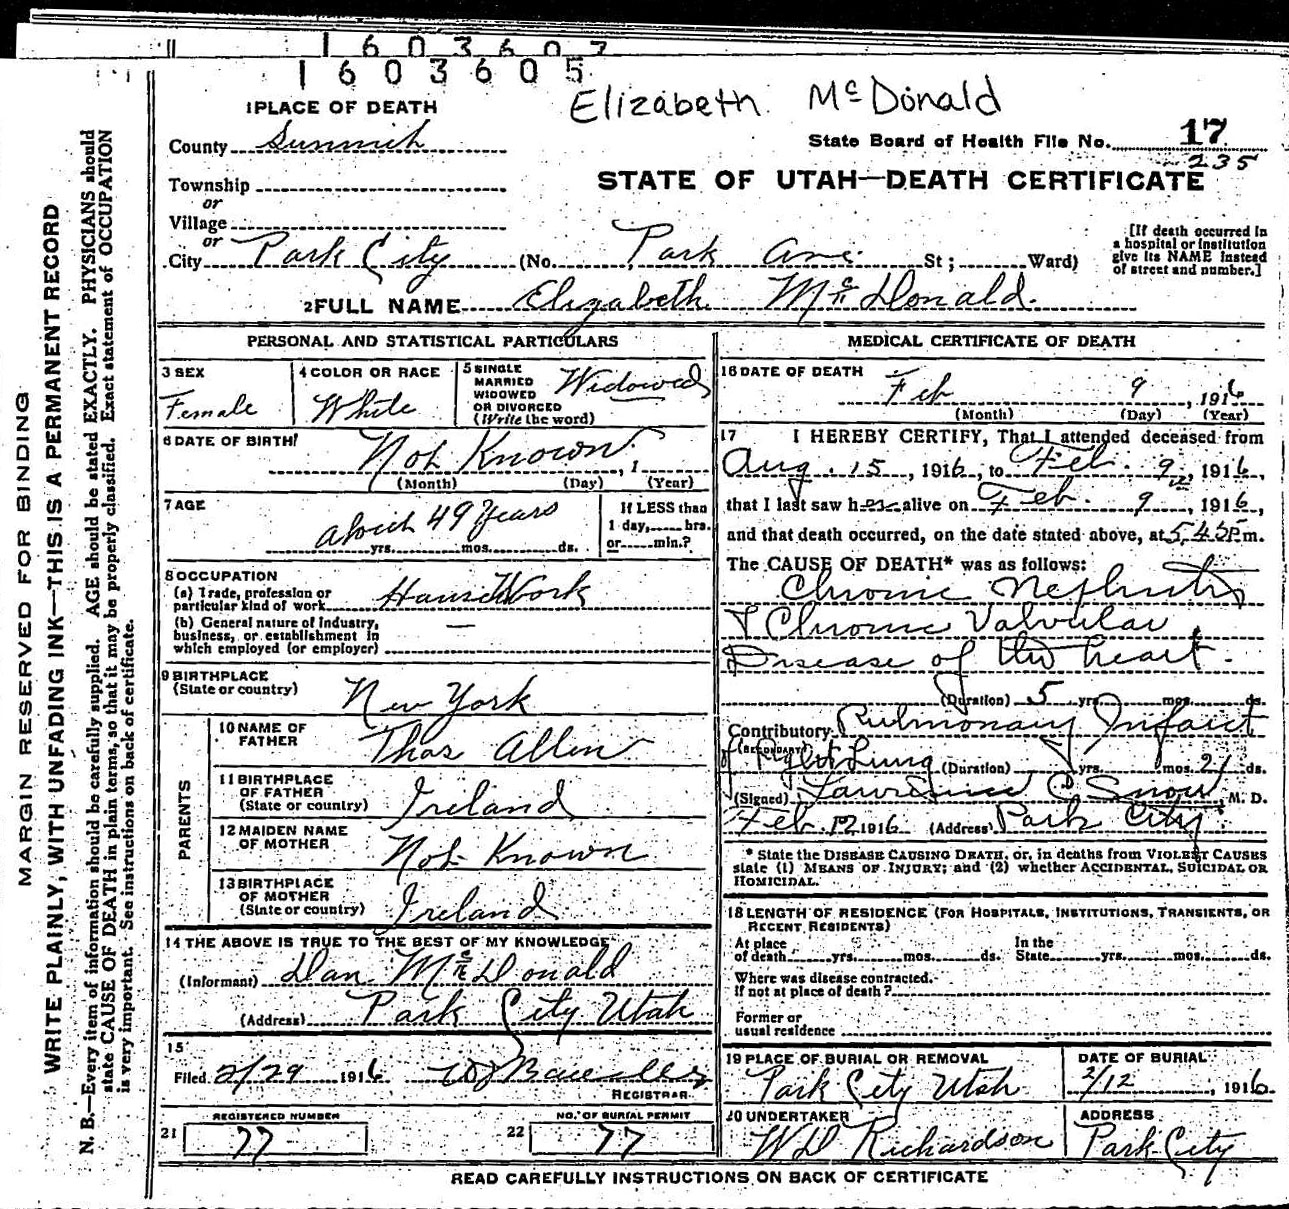 1603607
1603605
Elizabeth McDonald
1 PLACE OF DEATH
County Summit
State Board of Health File No. 17
235
Township
or
Village
or
STATE OF UTAH—DEATH CERTIFICATE
City Park City (No. Park Ave. St; Ward)
[If death occurred in
a hospital or institution
give its NAME instead
of street and number.]
2 FULL NAME Elizabeth McDonald.
PERSONAL AND STATISTICAL PARTICULARS
3 SEX
Female
4 COLOR OR RACE
White
5 SINGLE
MARRIED
WIDOWED
OR DIVORCED
(Write the word)
Widowed
6 DATE OF BIRTH
Not Known, 1
(Month) (Day) (Year)
7 AGE
about 49 years
yrs. mos. ds.
If LESS than
1 day, hrs.
or min.?
8 OCCUPATION
(a) Trade, profession or
particular kind of work House Work
(b) General nature of Industry,
business, or establishment in
which employed (or employer) —
9 BIRTHPLACE
(State or country) New York
PARENTS
10 NAME OF
FATHER Thos Allen
11 BIRTHPLACE
OF FATHER
(State or country) Ireland
12 MAIDEN NAME
OF MOTHER Not Known
13 BIRTHPLACE
OF MOTHER
(State or country) Ireland
14 THE ABOVE IS TRUE TO THE BEST OF MY KNOWLEDGE
(Informant) Dan McDonald
(Address) Park City Utah
15
Filed 2/29 1916
REGISTRAR
REGISTERED NUMBER
21 77
NO. OF BURIAL PERMIT
22 77
MEDICAL CERTIFICATE OF DEATH
16 DATE OF DEATH
Feb 9, 1916
(Month) (Day) (Year)
17 I HEREBY CERTIFY, That I attended deceased from
Aug. 15, 1916, to Feb. 9, 1916,
that I last saw her alive on Feb. 9, 1916,
and that death occurred, on the date stated above, at 5,45P m.
The CAUSE OF DEATH* was as follows:
Chronic Nephritis
& Chronic Valvular
Disease of the heart.
(Duration) 5 yrs. mos. ds.
Contributory Pulmonary Infarct
(SECONDARY)
of Right Lung (Duration) yrs. mos. 21 ds.
(Signed) Lawrence C Snow, M. D.
Feb. 12 1916 (Address) Park City
* State the DISEASE CAUSING DEATH, or, in deaths from VIOLENT CAUSES
state (1) MEANS OF INJURY; and (2) whether ACCIDENTAL, SUICIDAL OR
HOMICIDAL.
18 LENGTH OF RESIDENCE (FOR HOSPITALS, INSTITUTIONS, TRANSIENTS, OR
RECENT RESIDENTS)
At place
of death yrs. mos. ds.
In the
State yrs. mos. ds.
Where was disease contracted.
If not at place of death?
Former or
usual residence
19 PLACE OF BURIAL OR REMOVAL
Park City Utah
DATE OF BURIAL
2/12, 1916
20 UNDERTAKER
W D Richardson
ADDRESS
Park City
READ CAREFULLY INSTRUCTIONS ON BACK OF CERTIFICATE
MARGIN RESERVED FOR BINDING
WRITE PLAINLY, WITH UNFADING INK—THIS IS A PERMANENT RECORD
N. B.—Every item of information should be carefully supplied. AGE should be stated EXACTLY. PHYSICIANS should
state CAUSE OF DEATH in plain terms, so that it may be properly classified. Exact statement of OCCUPATION
is very important. See instructions on back of certificate.